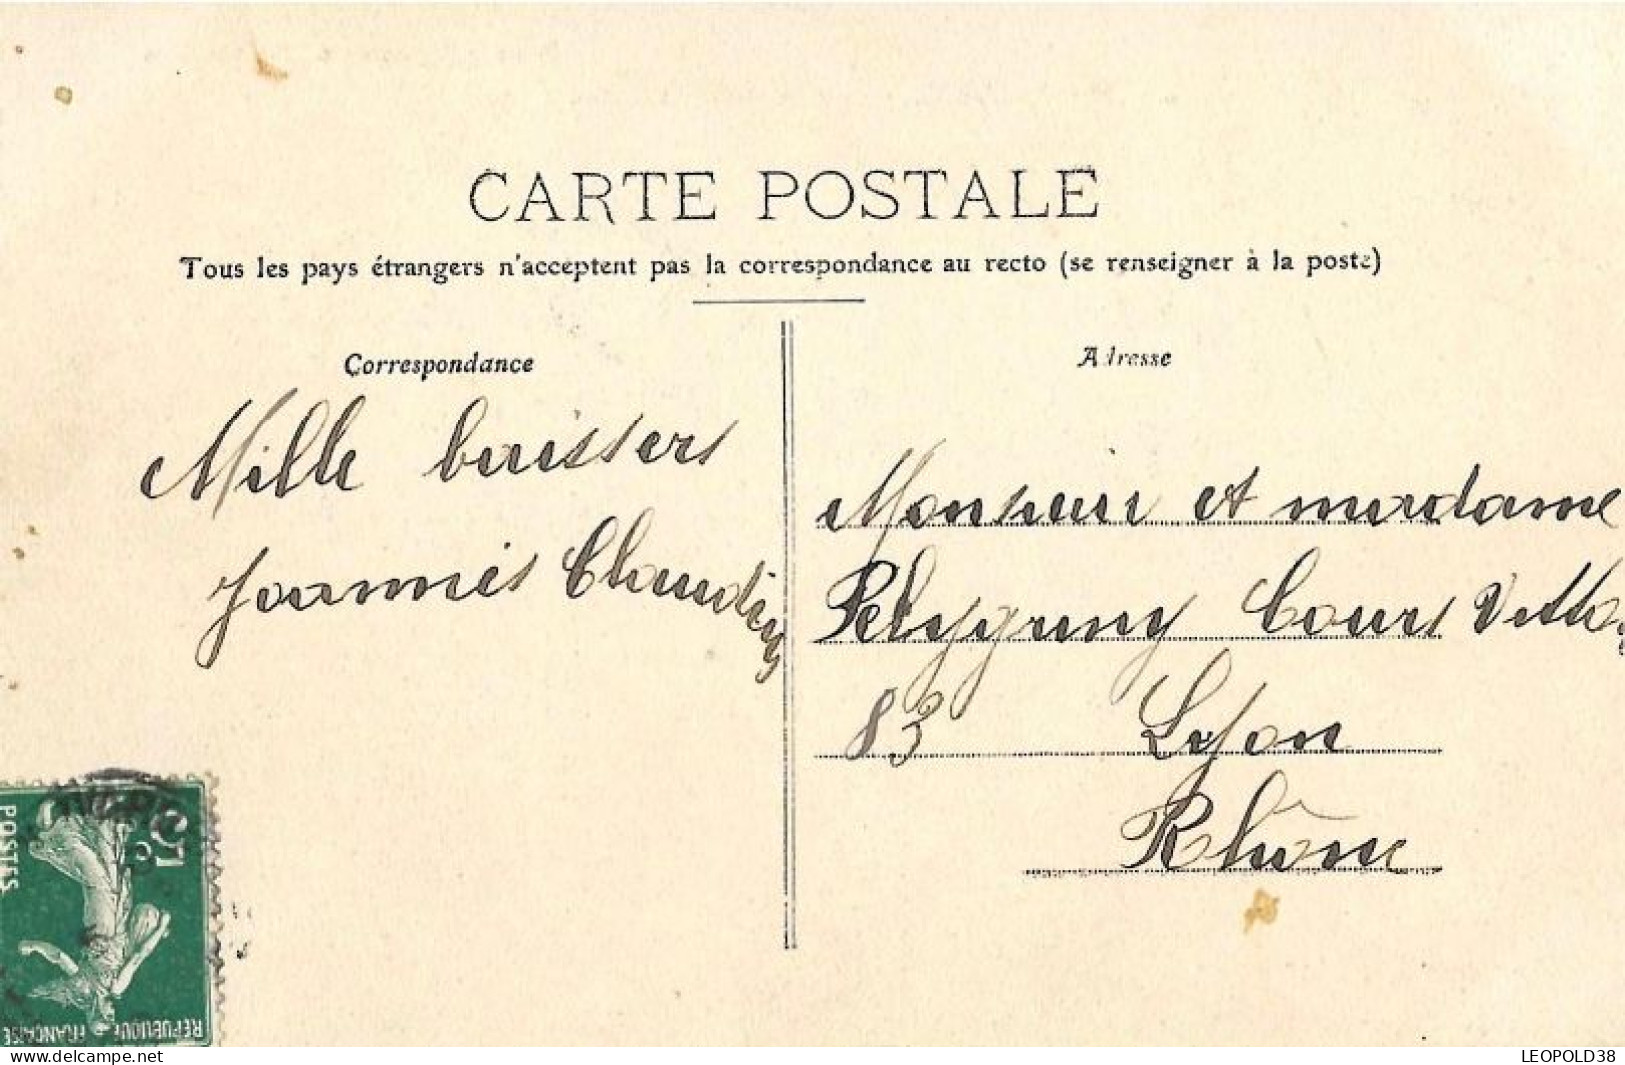 CARTE POSTALE
Tous les pays étrangers n'acceptent pas la correspondance au recto (se renseigner à la poste)
Correspondance
Adresse
Mille baissers
Joannès Claudius
Monsieur et madame
Cours Vitto
83 Lyon
Rhône
5
POSTES
REPUBLIQUE FRANÇAISE
www.delcampe.net
LEOPOLD38